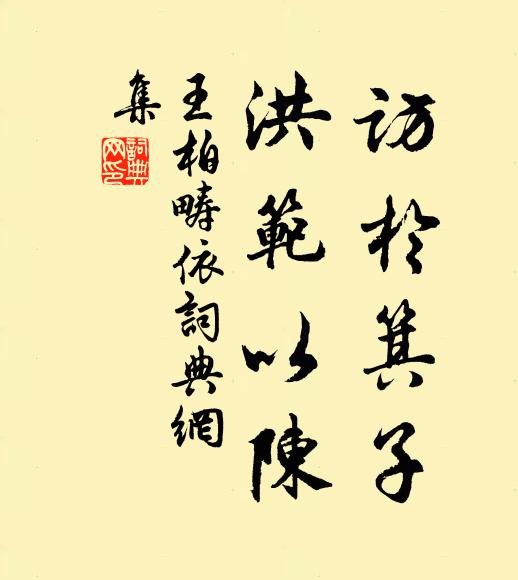 訪於箕子
洪範以陳
王柏疇依詞典網
集
詞典網印